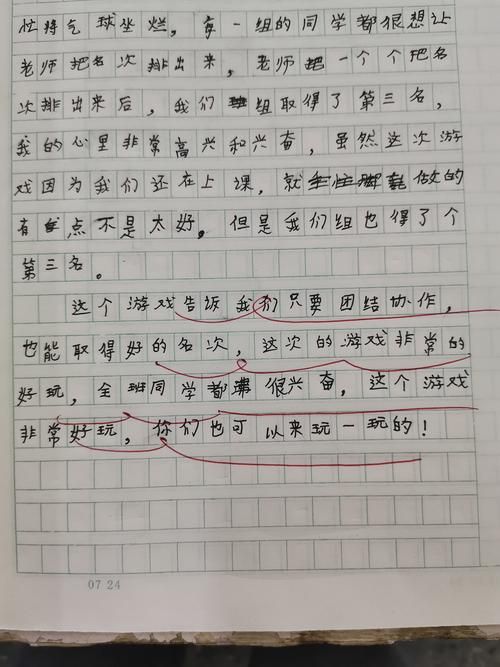 忙将气球坐烂，每一组的同学都很想让
老师把名次排出来，老师把一个个把名
次排出来后，我们组取得了第三名，
我的心里非常高兴和兴奋，虽然这次游
戏因为我们还在上课，就做的
有点不是太好。但是我们组也得了个
第三名。
这个游戏告诉我们只要团结协作，
也能取得好的名次，这次的游戏非常的
好玩，全班同学都很兴奋，这个游戏
非常好玩，你们也可以来玩一玩的！
07 24